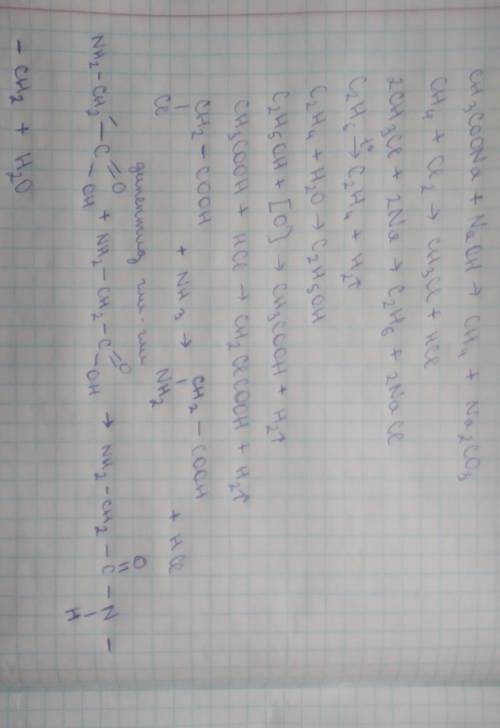 CH₃COONa + NaOH → CH₄ + Na₂CO₃
CH₄ + Cl₂ → CH₃Cl + HCl
2CH₃Cl + 2Na → C₂H₆ + 2NaCl
C₂H₆ →t° C₂H₄ + H₂↑
C₂H₄ + H₂O → C₂H₅OH
C₂H₅OH + [O] → CH₃COOH + H₂↑
CH₃COOH + HCl → CH₂ClCOOH + H₂↑
CH₂ – COOH + NH₃ → CH₂ – COOH + HCl
Cl NH₂
дипептид гли-гли
O
NH₂–CH₂–C=O–OH + NH₂–CH₂–C=O–OH → NH₂–CH₂–C–N–
H
– CH₂ + H₂O